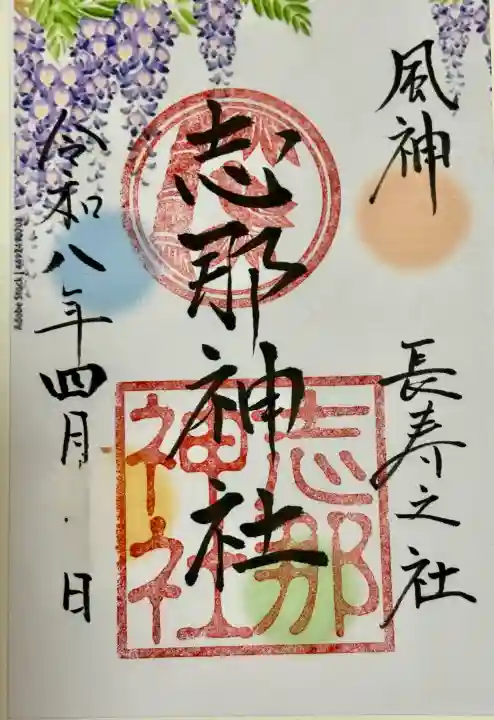 風神
長寿之社
志那神社
志那
神社
令和八年四月 . 日
Adobe Stock